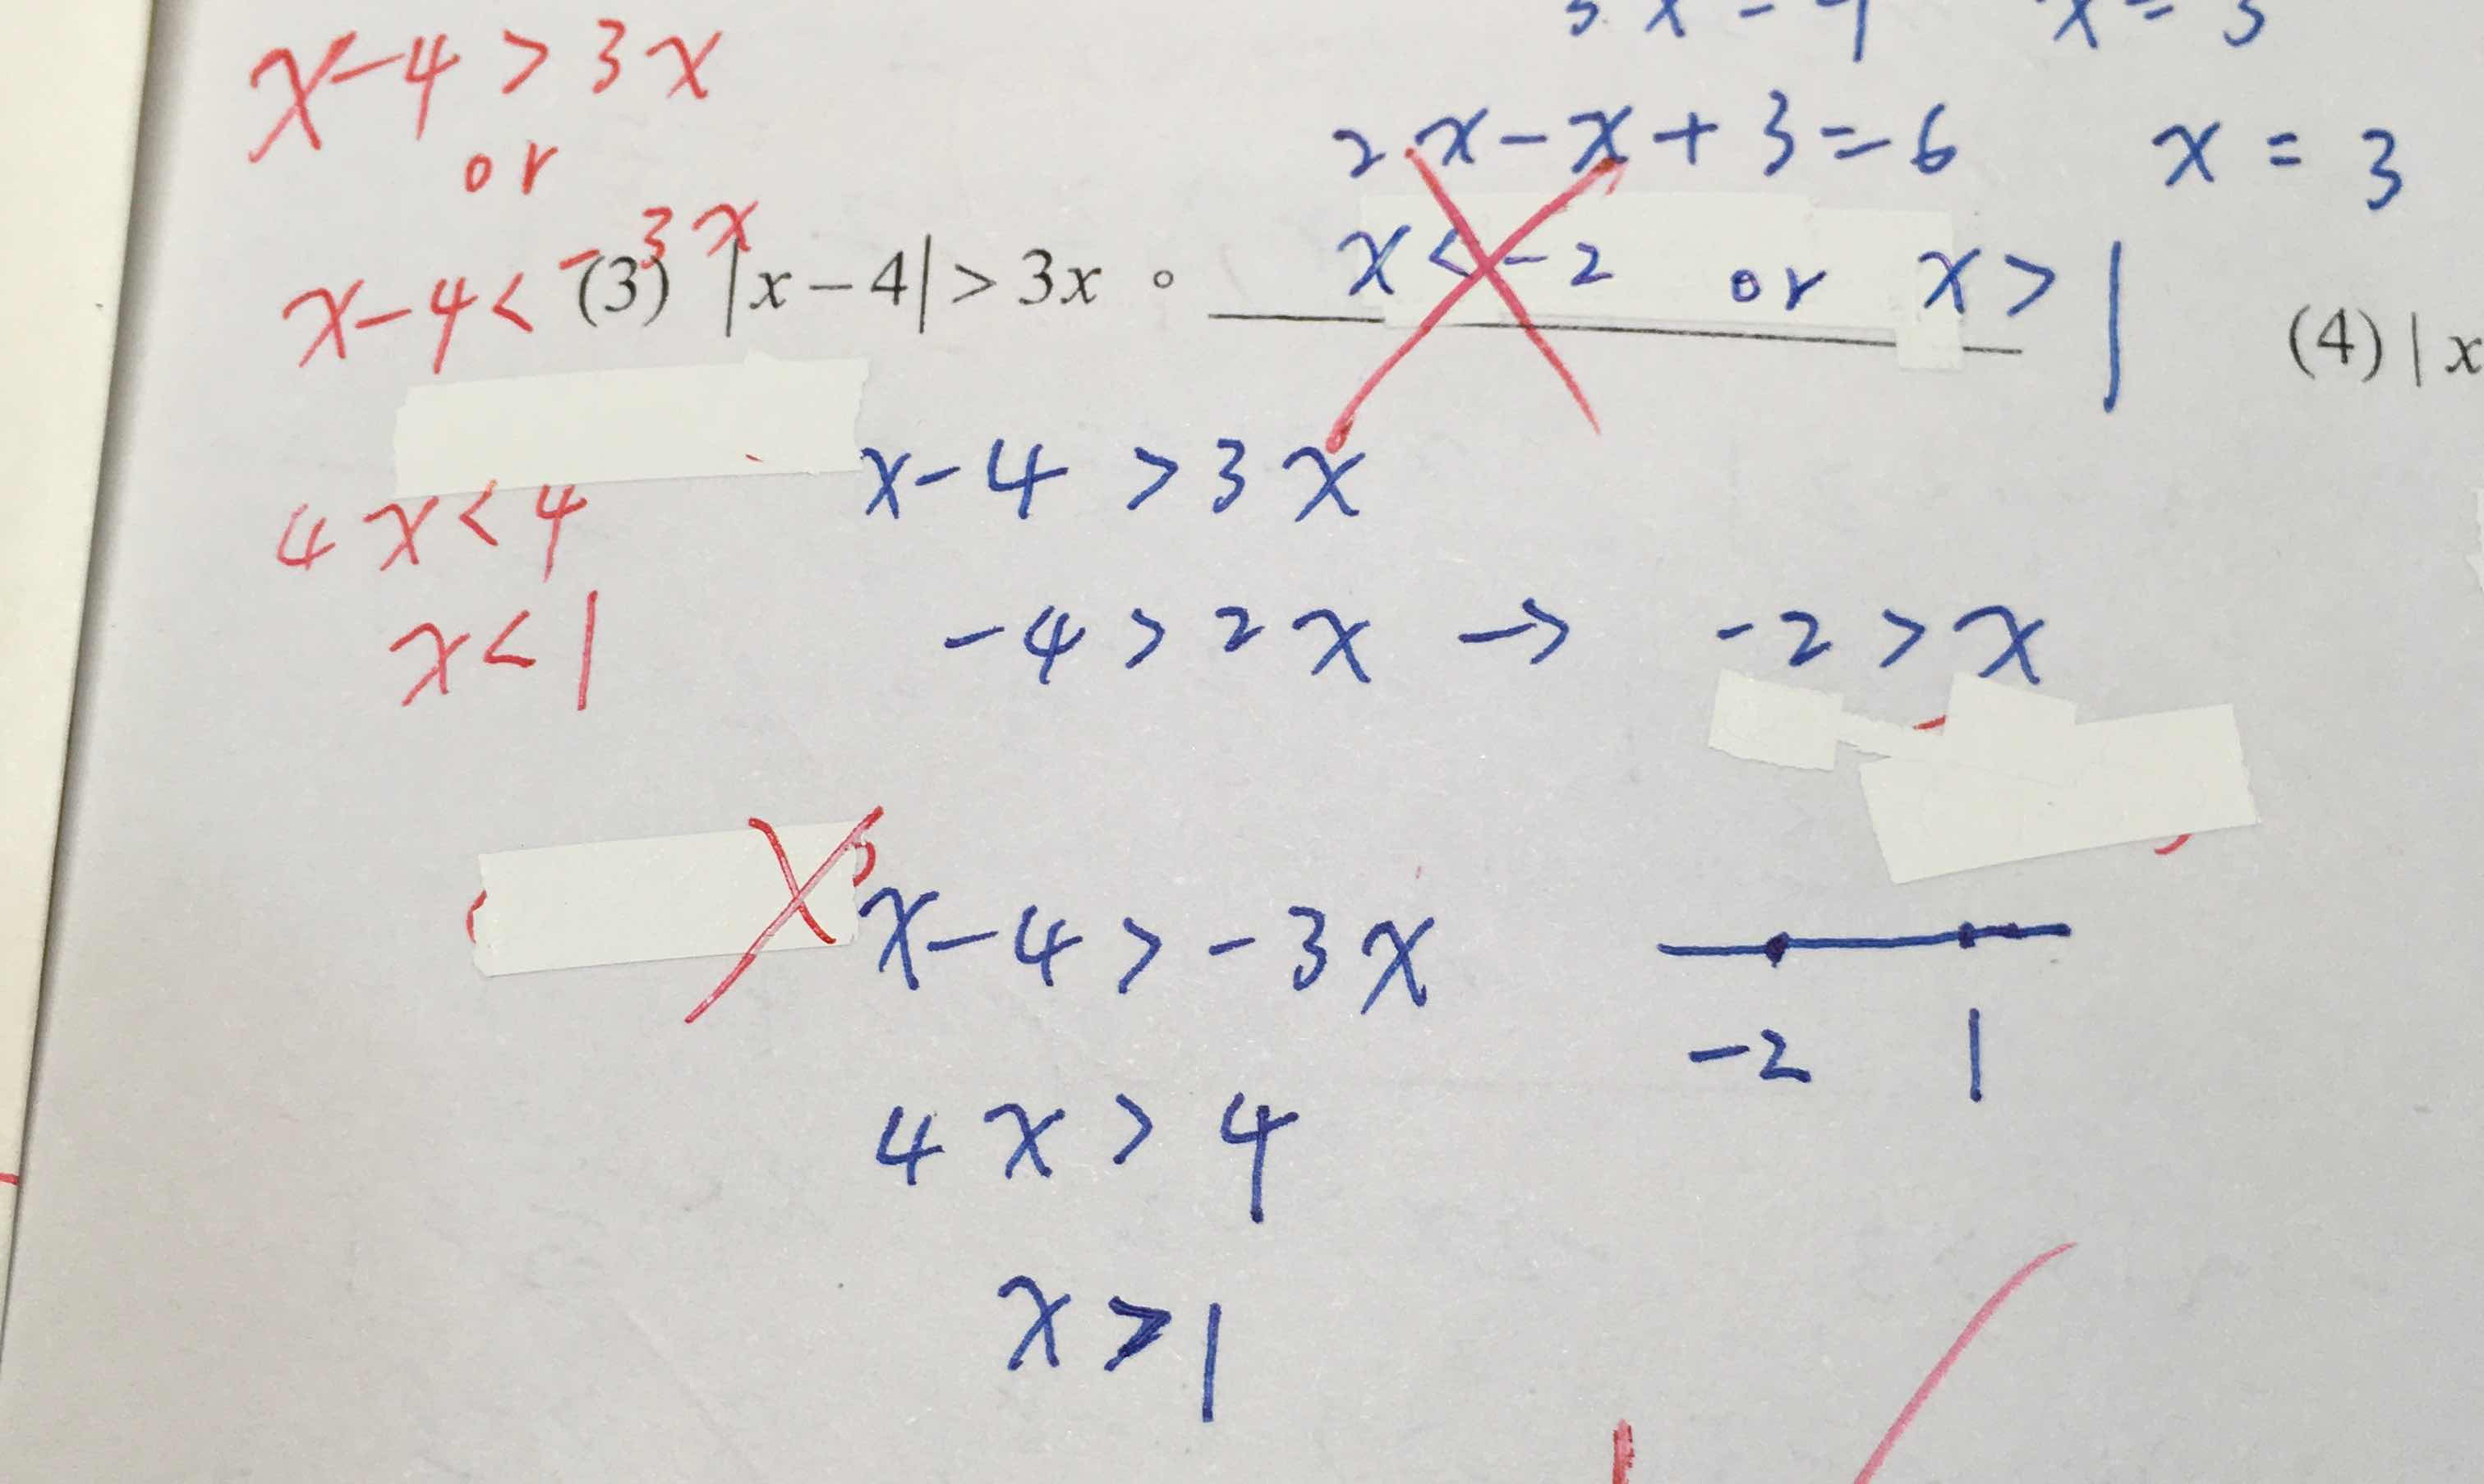 x-4 > 3x
or
x-4 < -3x
4x < 4
x < 1
2x-x+3=6 x = 3
(3) |x-4| > 3x 。 x < -2 or x > 1
(4) | x
x-4 > 3x
-4 > 2x → -2 > x
x-4 > -3x
-2 1
4x > 4
x > 1